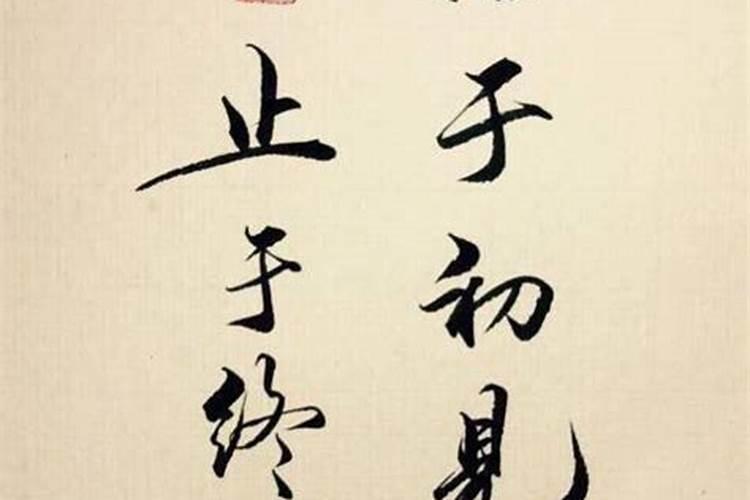 于初見
止于終